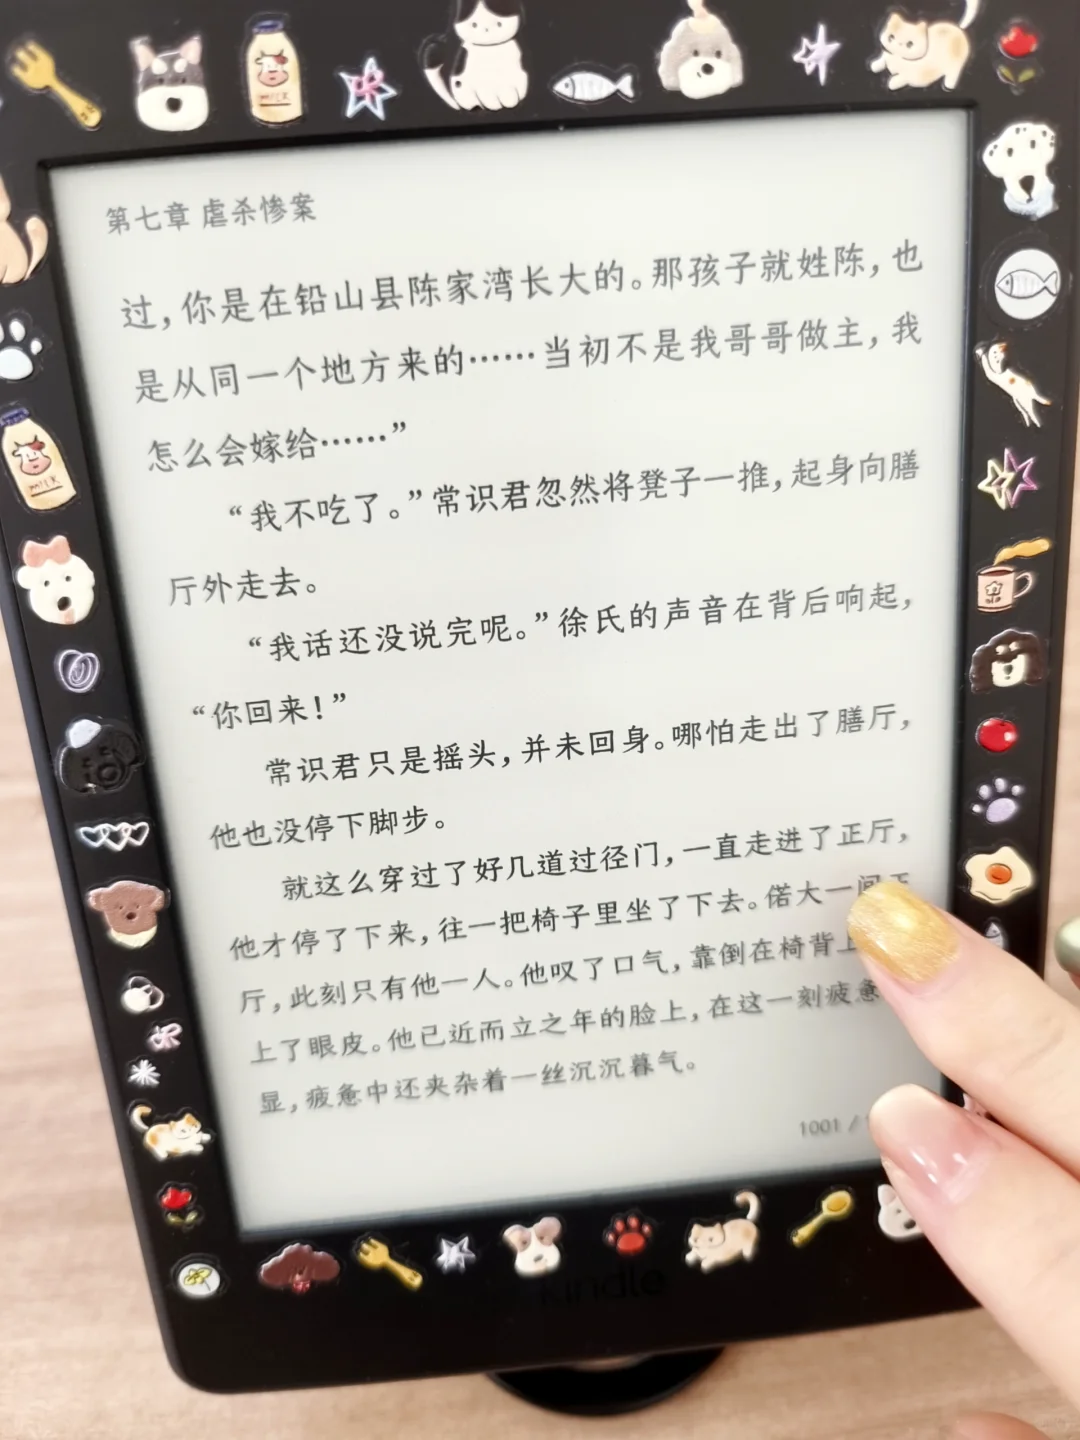 第七章 虐杀惨案
过，你是在铅山县陈家湾长大的。那孩子就姓陈，也
是从同一个地方来的……当初不是我哥哥做主，我
怎么会嫁给……”
“我不吃了。”常识君忽然将凳子一推，起身向膳
厅外走去。
“我话还没说完呢。”徐氏的声音在背后响起，
“你回来！”
常识君只是摇头，并未回身。哪怕走出了膳厅，
他也没停下脚步。
就这么穿过了好几道过径门，一直走进了正厅，
他才停了下来，往一把椅子里坐了下去。偌大一间正
厅，此刻只有他一人。他叹了口气，靠倒在椅背上
上了眼皮。他已近而立之年的脸上，在这一刻疲惫
显，疲惫中还夹杂着一丝沉沉暮气。
1001 /
kindle
MILK
MILK